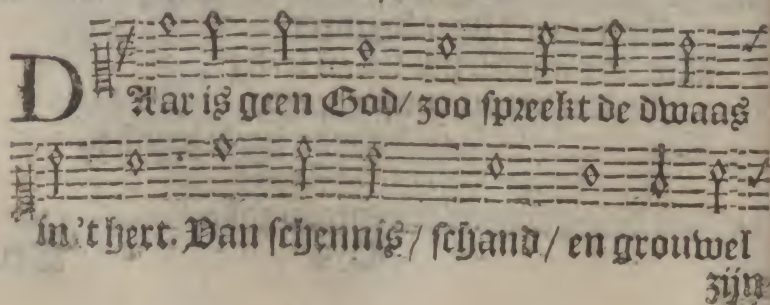 DAar is geen God/ zoo spreekt de dwaas
in 't hert. Van schennis/ schand/ en grouwel
zijn